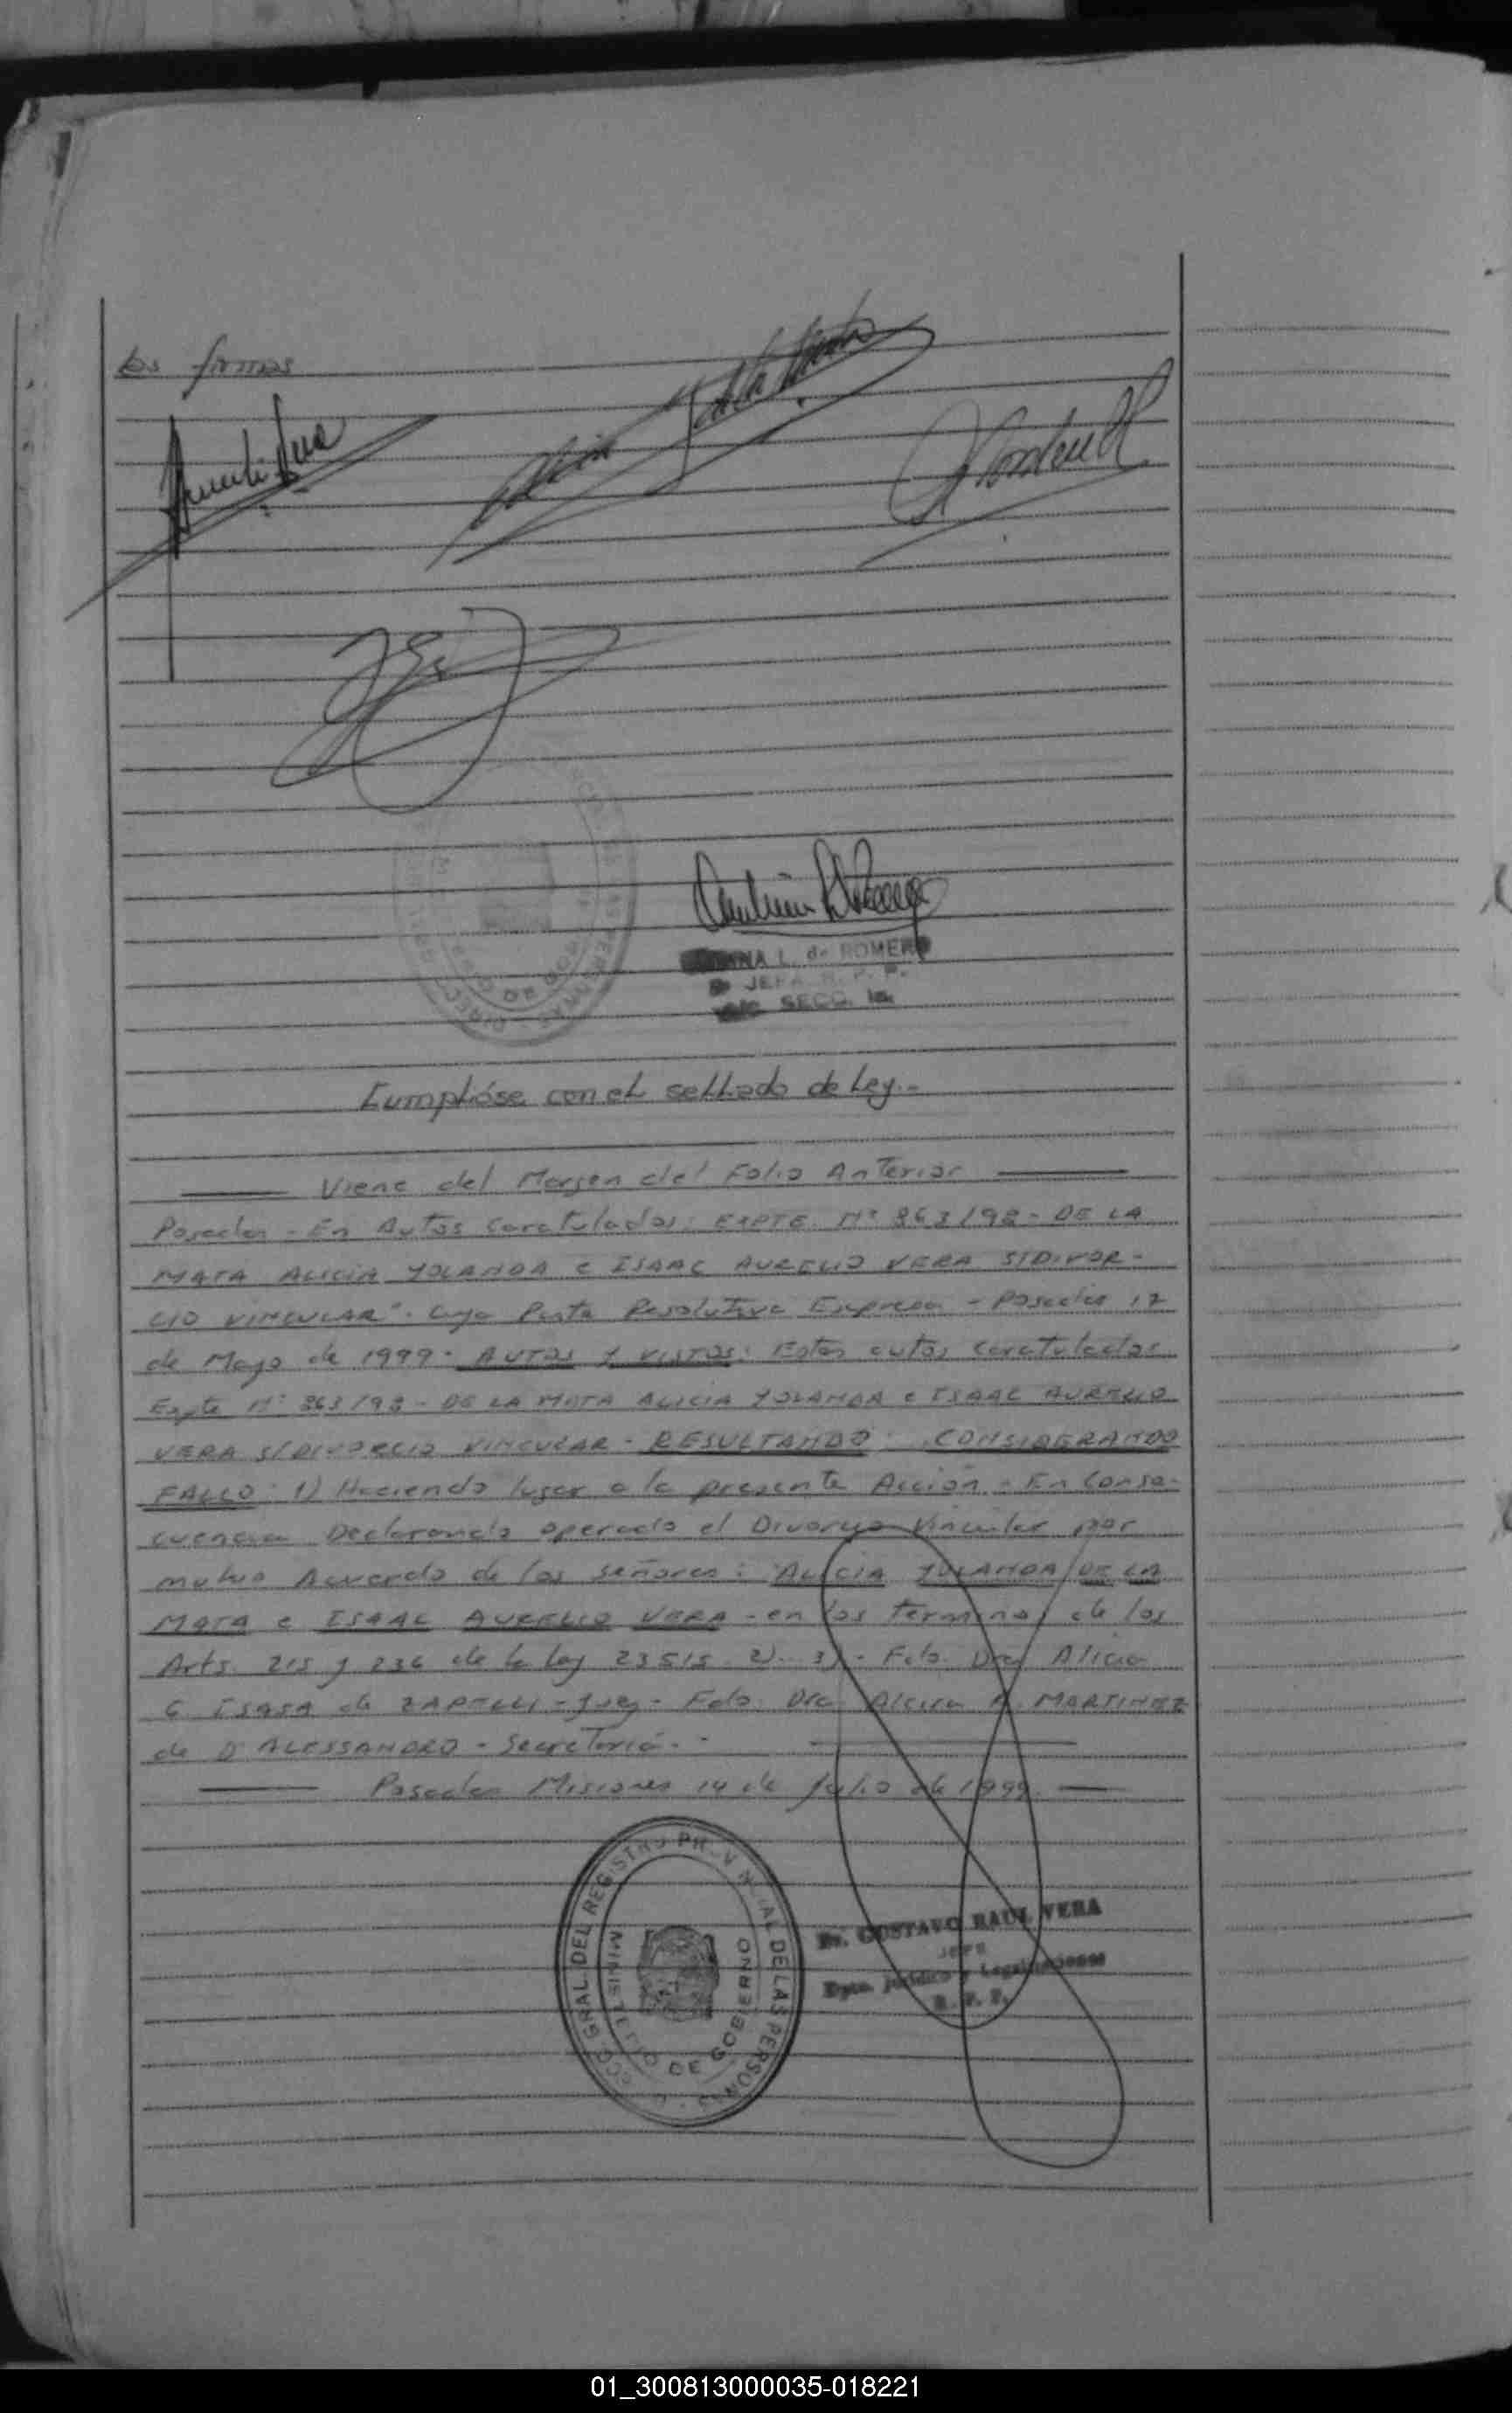 las firmas
L. de ROMERO
JEFA R. P. P.
SECC. 1a.
Cumplióse con el sellado de Ley.-
Viene del Margen del Folio Anterior
Posadas - En Autos Caratulados: EXPTE. Nº 363/98 - DE LA
MATA ALICIA YOLANDA e ISAAC AURELIO VERA S/DIVOR-
CIO VINCULAR". Cuya Parte Resolutiva Expresa - Posadas 12
de Mayo de 1999. AUTOS Y VISTOS: Estos autos caratulados
Expte Nº 363/98 - DE LA MATA ALICIA YOLANDA e ISAAC AURELIO
VERA S/DIVORCIO VINCULAR - RESULTANDO: CONSIDERANDO
FALLO: 1) Haciendo lugar a la presente Acción - En Conse-
cuencia Declarando operado el Divorcio Vincular por
mutuo Acuerdo de los señores: ALICIA YOLANDA DE LA
MATA e ISAAC AURELIO VERA - en los terminos de los
Arts. 215 y 236 de la Ley 23515. 2)... 3)... Fdo. Dra Alicia
G. ISASA de ZAPELLI - Juez - Fdo. Dra Alcira A. MARTINEZ
de D'ALESSANDRO - Secretaria. -
Posadas Misiones 14 de Julio de 1999.
DIRECC. GRAL. DEL REGISTRO PROVINCIAL DE LAS PERSONAS
MINISTERIO DE GOBIERNO
Dr. GUSTAVO RAUL VERA
JEFE
Dpto. Jurídico y Legalizaciones
R. P. P.
01_300813000035-018221